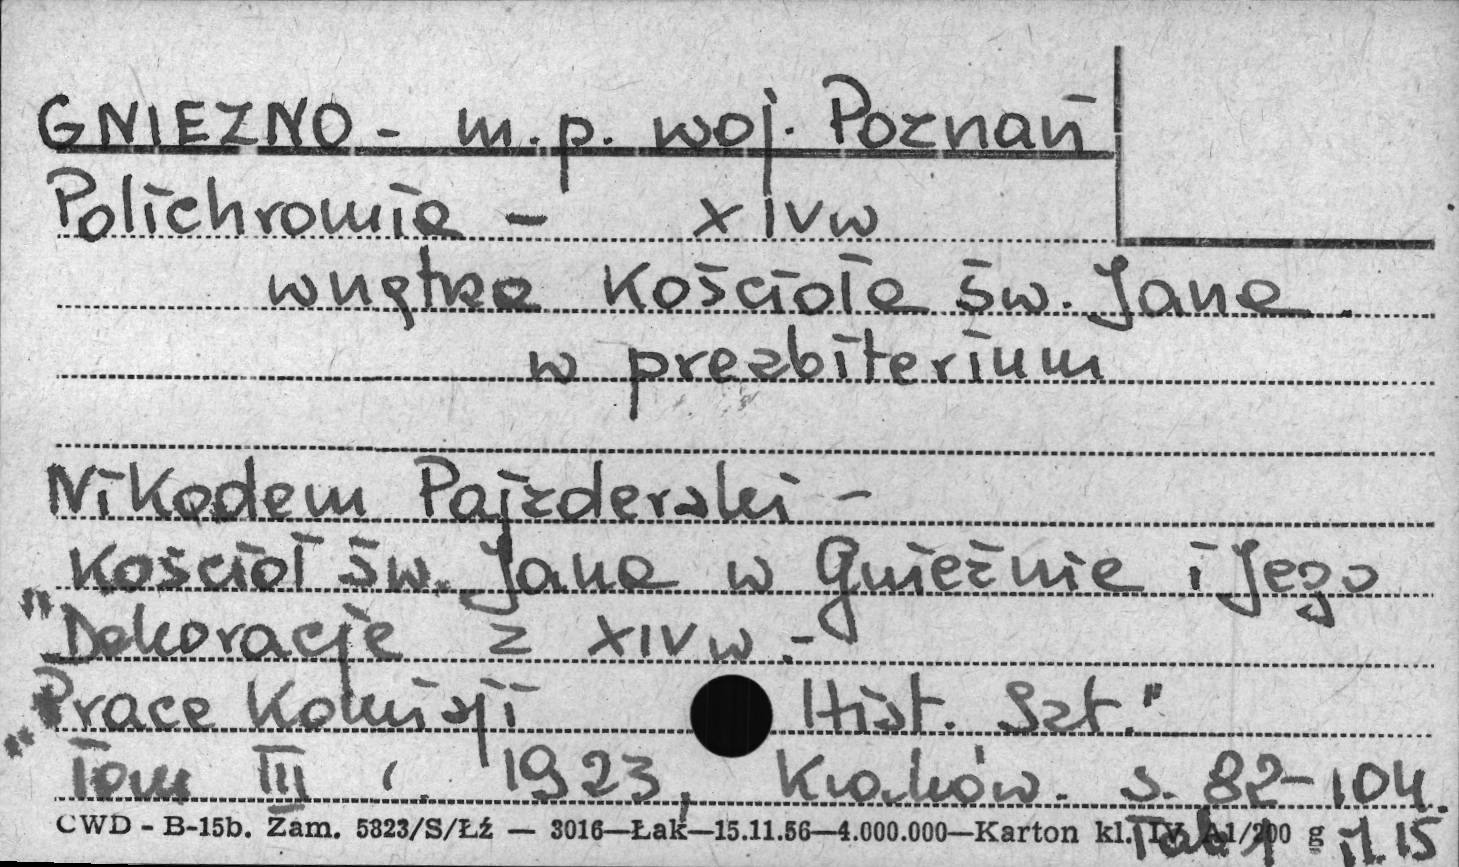 GNIEZNO - m.p. woj. Poznań
Polichromie - XIV w
wnętrze Kościoła św. Jana.
w prezbiterium
Nikodem Pajzderski -
Kościoł św. Jana w Gnieźnie i Jego
"Dekoracje z XIV w.-
"Prace Komisji Hist. Szt."
Tom III . 1923, Kraków. s. 82-104.
Tab 1 il. 15
CWD - B-15b. Zam. 5823/S/Łź — 3016—Łak—15.11.56—4.000.000—Karton kl. IV A1/200 g